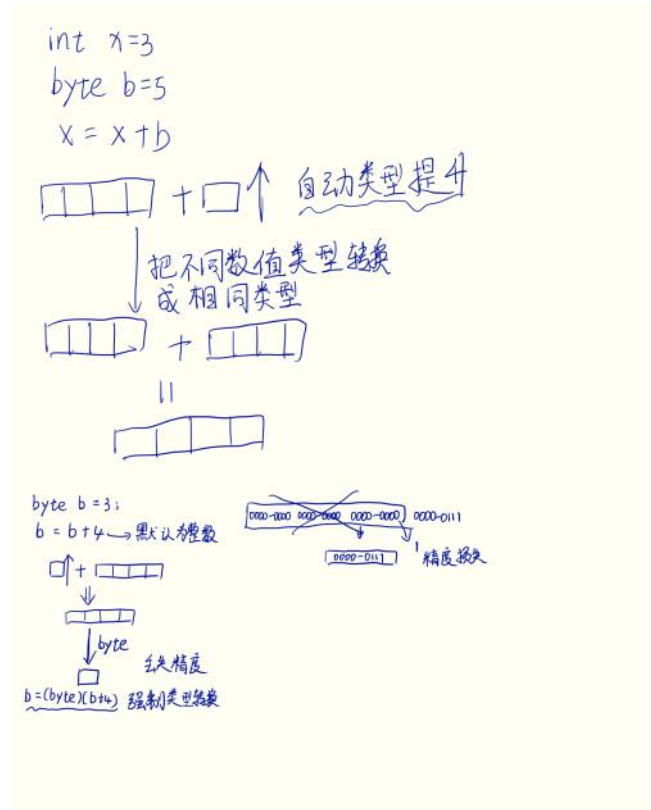 int x=3
byte b=5
x = x+b
+ 自动类型提升
把不同数值类型转换
成相同类型
+
=
byte b=3;
b = b+4 → 默认为整数
+
byte
丢失精度
b=(byte)(b+4) 强制类型转换
0000-0000 0000-0000 0000-0000 0000-0111
0000-0111 精度损失